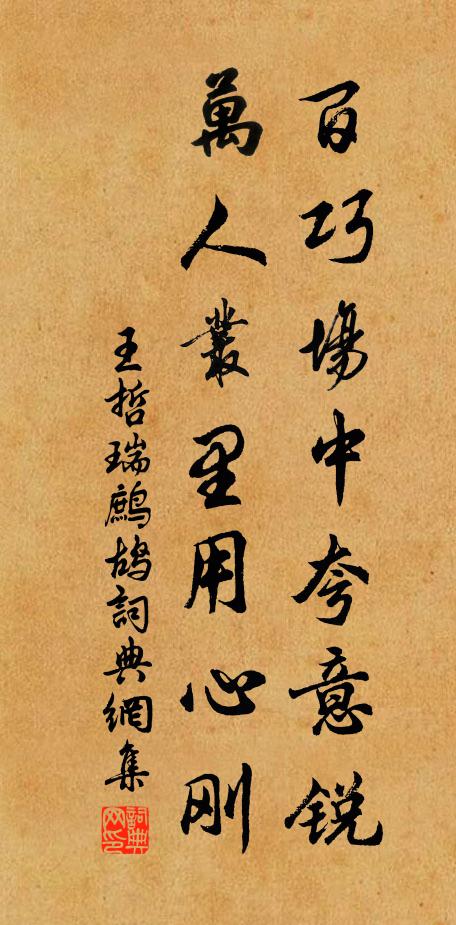 百巧場中夸意銳
萬人叢里用心刚
王哲瑞鷓鴣詞典網集
詞典网印